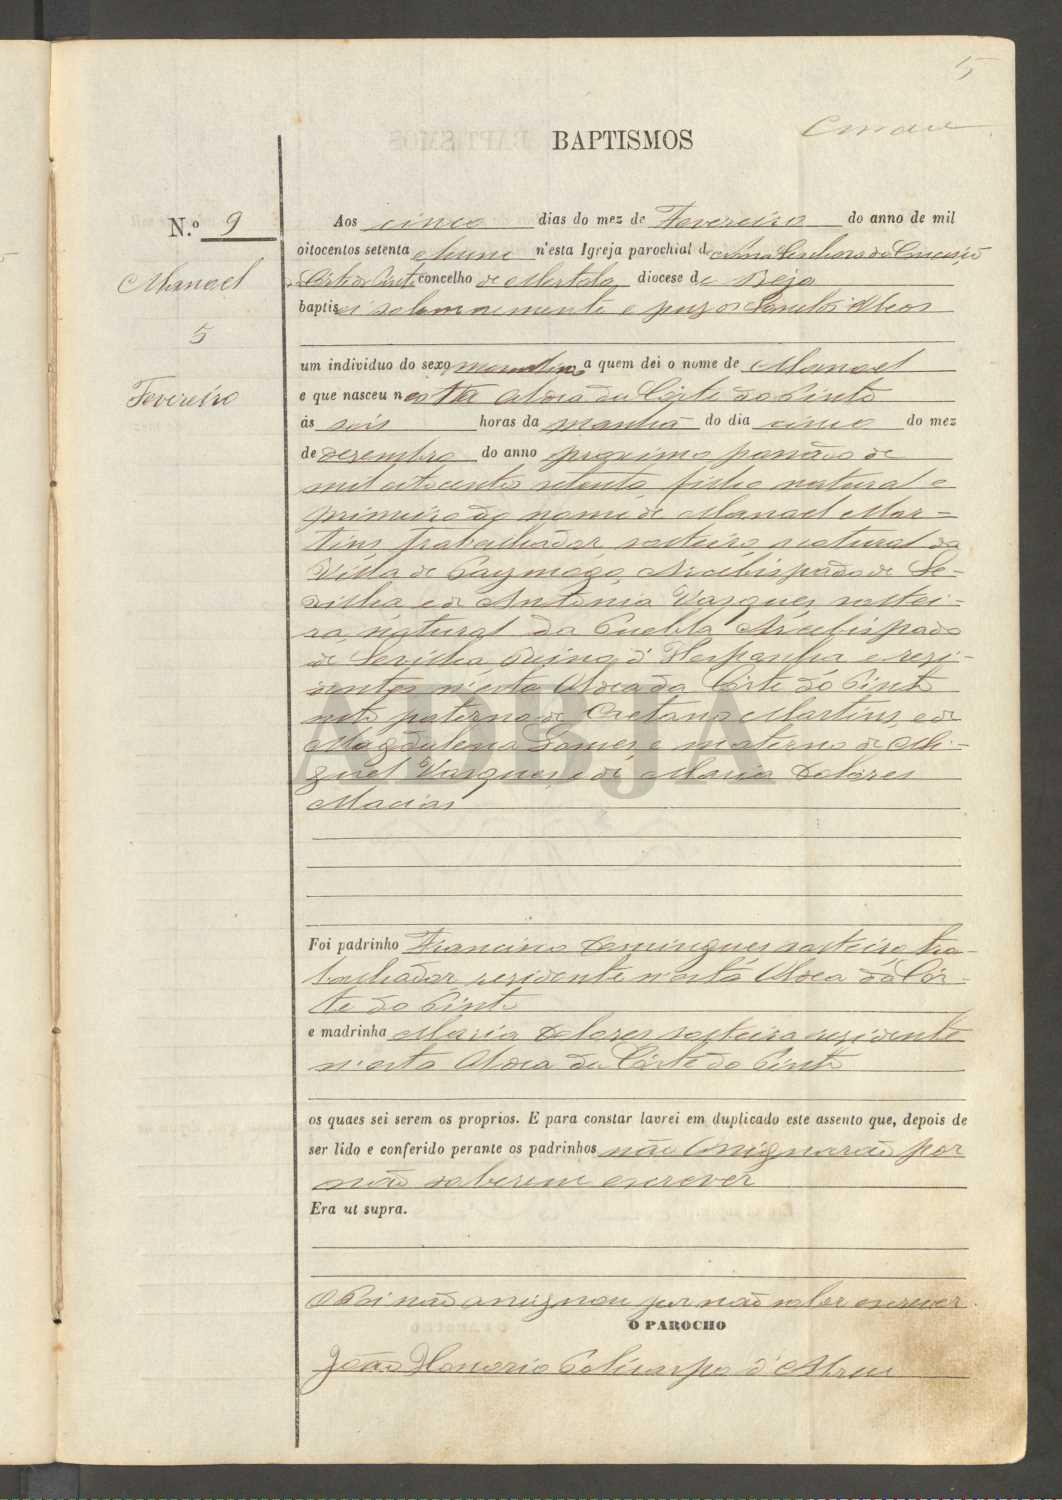 5
BAPTISMOS
N.º 9
Manoel
5
Fevereiro
Aos cinco dias do mez de Fevereiro do anno de mil
oitocentos setenta e hum n'esta Igreja parochial de Nossa Senhora da Conceição
da Corte do Pinto concelho de Mertola diocese de Beja
baptisei solemnemente e puz os Santos Oleos
um individuo do sexo masculino a quem dei o nome de Manoel
e que nasceu nesta Aldea da Côrte do Pinto
ás seis horas da manhã do dia cinco do mez
de dezembro do anno proximo passado de
mil oitocentos setenta filho natural e
primeiro do nome de Manoel Mar-
tins trabalhador solteiro natural da
Villa de Paymogo, Arcebispado de Se-
vilha e de Antonia Vasques soltei-
ra, natural da Puebla Arcebispado
de Sevilha Reino d'Hespanha e rezi-
dentes n'esta Aldea da Côrte do Pinto
neto paterno de Caetano Martins, e de
Magdalena Gomes e materno de Mi-
guel Vasques, e de Maria Dolores
Macias
ADBJA
Foi padrinho Francisco Domingues solteiro tra-
balhador rezidente n'esta Aldea da Côr-
te do Pinto
e madrinha Maria Dolores solteira rezidente
n'esta Aldea da Côrte do Pinto
os quaes sei serem os proprios. E para constar lavrei em duplicado este assento que, depois de
ser lido e conferido perante os padrinhos não assignarão por
não saberem escrever
Era ut supra.
O Pai não assignou por não saber escrever.
O PAROCHO
João Honorio Policarpo d'Abreu